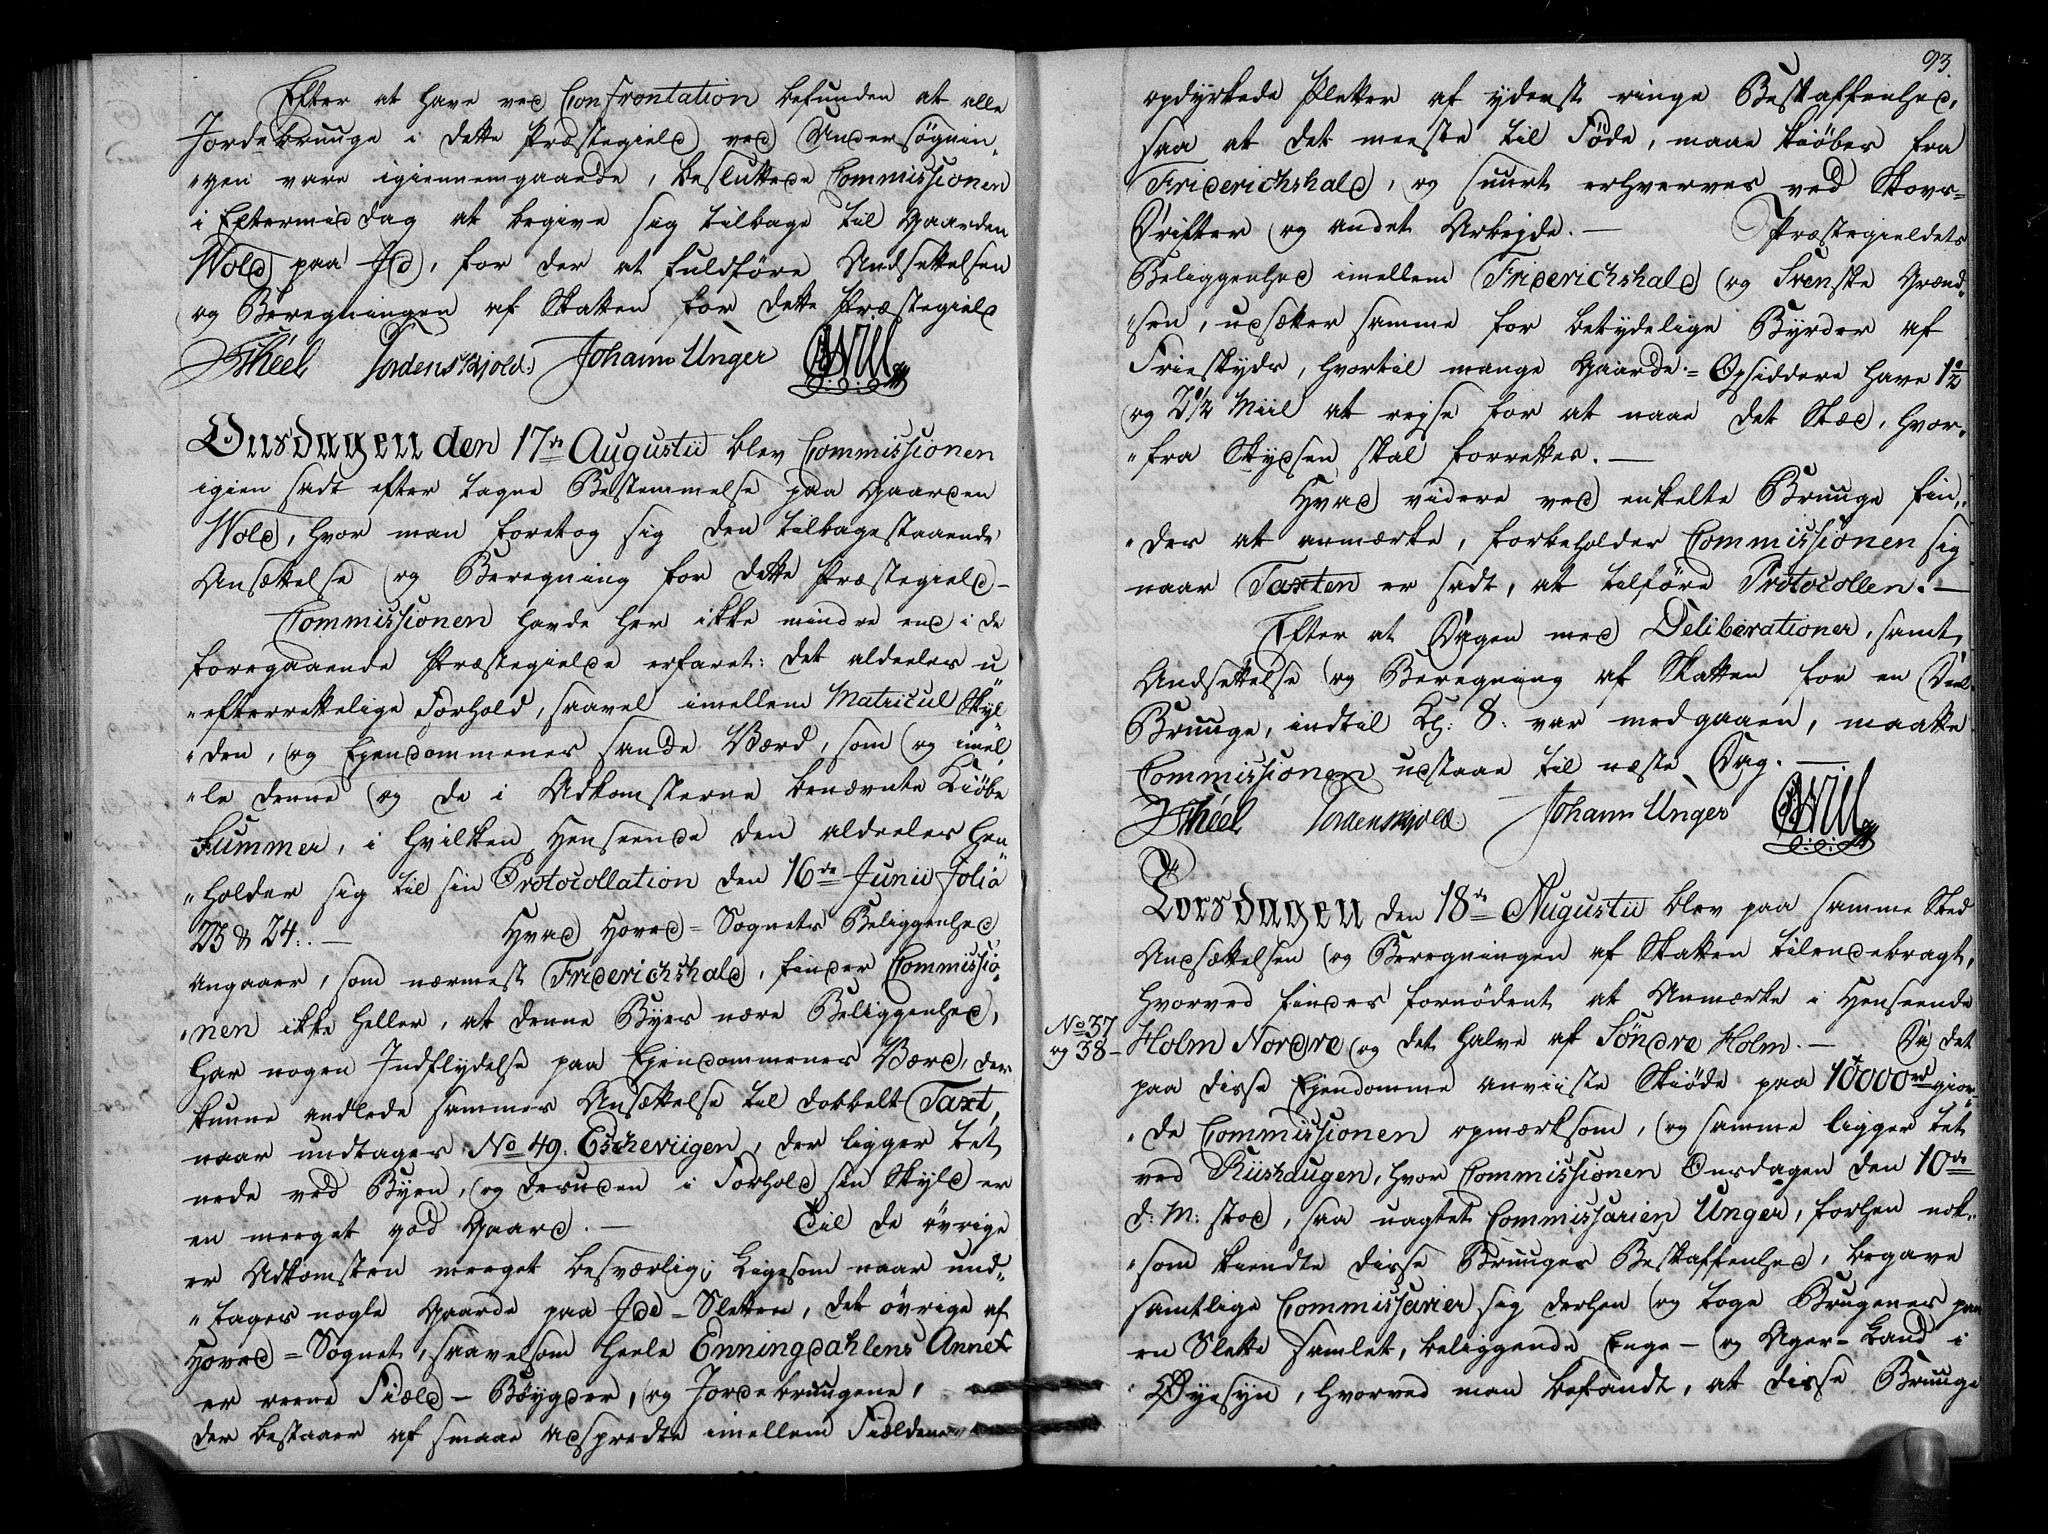 Efter at have ved Confrontation befunden at alle
Jordebruuge i dette Præstegield ved Undersøgnin„
„gen vare igiennemgaaede, besluttede Commissionen
i Eftermiddag at begive sig tilbage til Gaarden
Wold paa Id, for der at fuldföre Andsettelsen
og Beregningen af Skatten for dette Præstegield
FThéel Tordenskjold. Johann Unger CWill
Onsdagen den 17de Augustii blev Commissionen
igien sadt efter tagne Bestemmelse paa Gaarden
Wold, hvor man foretog sig den tilbagestaaende
Ansættelse og Beregning for dette Præstegield –
Commissionen havde her ikke mindre end i de
foregaaende Præstegielde erfaret: det aldeeles u
„efterrettelige Forhold, saavel imellem Matricul Skÿl
„den, og Ejendommenes sande Værd, som og imel„
„le denne og de i Adkomsterne benævnte Kiöbe
Summer, i hvilken Henseende den aldeeles hen
„holder sig til sin Protocollation den 16de Junii Folio
23 & 24. – Hvad Hoved-Sognets Beliggenhed
angaaer, som nærmest Friderichshald, finder Commissio„
„nen ikke heller, at denne Byes nære Beliggenhed,
har nogen Indflydelse paa Ejendommenes Værd, der
kunne andlede sammes Ansættelse til dobbelt Taxt,
naar undtages No 49. Escheviigen, der ligger tet
nede ved Byen, og desuden i Forhold sin Skyld er
en meeget god Gaard. – Til de övrige
er Adkomsten meeget besværlig; Ligesom naar und„
„tages nogle Gaarde paa Idd-Sletten, det övrige af
Hoved=Sognet, saavelsom heele Enningdahlens Annex
er reene Fiæld-Böygder, og Jordebruugene,
der bestaaer af smaae adspredte imellem Fieldene
93.
opdyrkede Pletter af yderst ringe Beskaffenhed,
saa at det meeste til Føde, maae kiöbes fra
Friderichshald, og suurt erhverves ved Skovs-
Drifter og andet Arbejde. – Præstegieldets
Beliggenhed imellem Friderichshald og Svenske Grænd„
„sen, udsætter samme for betydelige Byrder af
Frieskyds, hvortil mange Gaarde-Opsiddere have 1½
og 2½ Miil at rejse for at naae det Stæd, hvor„
„fra Skydsen skal forrettes. –
Hvad videre ved enkelte Bruuge fin„
„des at anmærke, forbeholder Commissionen sig
naar Taxten er sadt, at tilföre Protocollen. –
Efter at Dagen med Deliberationer, samt
Andsettelse og Beregning af Skatten for en Deel
Bruuge, indtil Kl: 8. var medgaaen, maatte
Commissionen udstaae til næste Dag. –
FThéel Tordenskjold. Johann Unger CWill
Torsdagen den 18de Augustii blev paa samme Sted
Andsættelsen og Beregningen af Skatten tilendebragt,
hvorved findes fornödent at Anmærke i Henseende
No 37
og 38– Holm Nordre og det halve af Söndre Holm. – Da det
paa disse Ejendomme anviiste Skiöde paa 10000rd gior„
„de Commissionen opmærksom, og samme ligger tet
ved Riishaugen, hvor Commissionen Onsdagen den 10de
d: M: stod, saa uagtet Commissarien Unger, forhen nok„
„som kiendte disse Bruuges Beskaffenhed, begave
samtlige Commissarier sig derhen og toge Brugenes paa
en Slette samlet, beliggende Enge- og Ager-Land i
Øyesyn, hvorved man befandt, at disse Bruuge